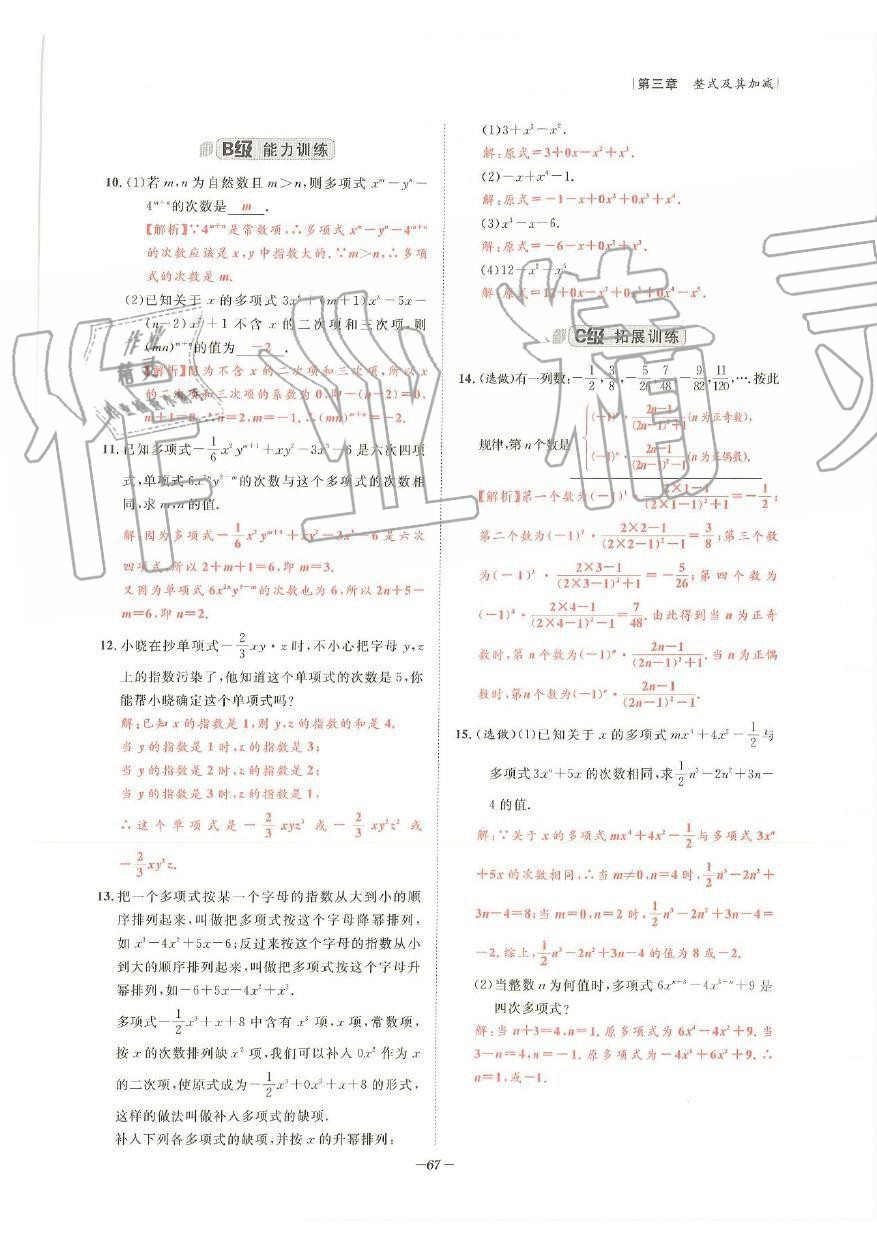 第三章 整式及其加减
B级 能力训练
10. (1)若 m,n 为自然数且 m>n,则多项式 xᵐ-yⁿ-
4ᵐ⁺ⁿ的次数是 m .
【解析】∵4ᵐ⁺ⁿ是常数项,∴多项式 xᵐ-yⁿ-4ᵐ⁺ⁿ
的次数应该是 x,y 中指数大的.∵m>n,∴多项
式的次数是 m.
(2)已知关于 x 的多项式 3x⁴+(m+1)x³-5x-
(n-2)x²+1 不含 x 的二次项和三次项,则
(mn)ᵐ⁺ⁿ的值为 -2 .
【解析】因为不含 x 的二次项和三次项,所以 x
的二次项和三次项的系数为 0,即-(n-2)=0,
m+1=0.∴n=2,m=-1.∴(mn)ᵐ⁺ⁿ=-2.
11. 已知多项式-1/6 x²yᵐ⁺¹+xy²-3x³-6 是六次四项
式,单项式 6x²ⁿy⁵⁻ᵐ的次数与这个多项式的次数相
同,求 m,n 的值.
解:因为多项式-1/6 x²yᵐ⁺¹+xy²-3x³-6 是六次
四项式,所以 2+m+1=6,即 m=3.
又因为单项式 6x²ⁿy⁵⁻ᵐ的次数也为 6,所以 2n+5-
m=6,即 n=2.
12. 小晓在抄单项式-2/3 xy·z 时,不小心把字母 y,z
上的指数污染了,他知道这个单项式的次数是 5,你
能帮小晓确定这个单项式吗?
解:已知 x 的指数是 1,则 y,z 的指数的和是 4.
当 y 的指数是 1 时,z 的指数是 3;
当 y 的指数是 2 时,z 的指数是 2;
当 y 的指数是 3 时,z 的指数是 1.
∴这个单项式是-2/3 xyz³ 或-2/3 xy²z² 或
-2/3 xy³z.
13. 把一个多项式按某一个字母的指数从大到小的顺
序排列起来,叫做把多项式按这个字母降幂排列,
如 x³-4x²+5x-6;反过来按这个字母的指数从小
到大的顺序排列起来,叫做把多项式按这个字母升
幂排列,如-6+5x-4x²+x³.
多项式-1/2 x³+x+8 中含有 x³ 项,x 项,常数项,
按 x 的次数排列缺 x² 项,我们可以补入 0x² 作为 x
的二次项,使原式成为-1/2 x³+0x²+x+8 的形式,
这样的做法叫做补入多项式的缺项.
补入下列各多项式的缺项,并按 x 的升幂排列:
(1)3+x³-x².
解:原式=3+0x-x²+x³.
(2)-x+x⁴-1.
解:原式=-1-x+0x²+0x³+x⁴.
(3)x³-x-6.
解:原式=-6-x+0x²+x³.
(4)12-x²-x⁵
解:原式=12+0x-x²+0x³+0x⁴-x⁵
C级 拓展训练
14. (选做)有一列数:-1/2,3/8,-5/26,7/48,-9/82,11/120,….按此
规律,第 n 个数是 {(-1)ⁿ·(2n-1)/((2n-1)²+1)(n 为正奇数),
(-1)ⁿ·(2n-1)/((2n-1)²-1)(n 为正偶数).
【解析】第一个数为(-1)¹·(2×1-1)/((2×1-1)²+1)=-1/2;
第二个数为(-1)²·(2×2-1)/((2×2-1)²-1)=3/8;第三个数
为(-1)³·(2×3-1)/((2×3-1)²+1)=-5/26;第四个数为
(-1)⁴·(2×4-1)/((2×4-1)²-1)=7/48.由此得到当 n 为正奇
数时,第 n 个数为(-1)ⁿ·(2n-1)/((2n-1)²+1).当 n 为正偶
数时,第 n 个数为(-1)ⁿ·(2n-1)/((2n-1)²-1).
15. (选做)(1)已知关于 x 的多项式 mx⁴+4x²-1/2 与
多项式 3xⁿ+5x 的次数相同,求 1/2 n³-2n²+3n-
4 的值.
解:∵关于 x 的多项式 mx⁴+4x²-1/2 与多项式 3xⁿ
+5x 的次数相同,∴当 m≠0,n=4 时,1/2 n³-2n²+
3n-4=8;当 m=0,n=2 时,1/2 n³-2n²+3n-4=
-2.综上,1/2 n³-2n²+3n-4 的值为 8 或-2.
(2)当整数 n 为何值时,多项式 6xⁿ⁺³-4x³⁻ⁿ+9 是
四次多项式?
解:当 n+3=4,n=1.原多项式为 6x⁴-4x²+9.当
3-n=4,n=-1.原多项式为-4x⁴+6x²+9.∴
n=1,或-1.
-67-
作业精灵